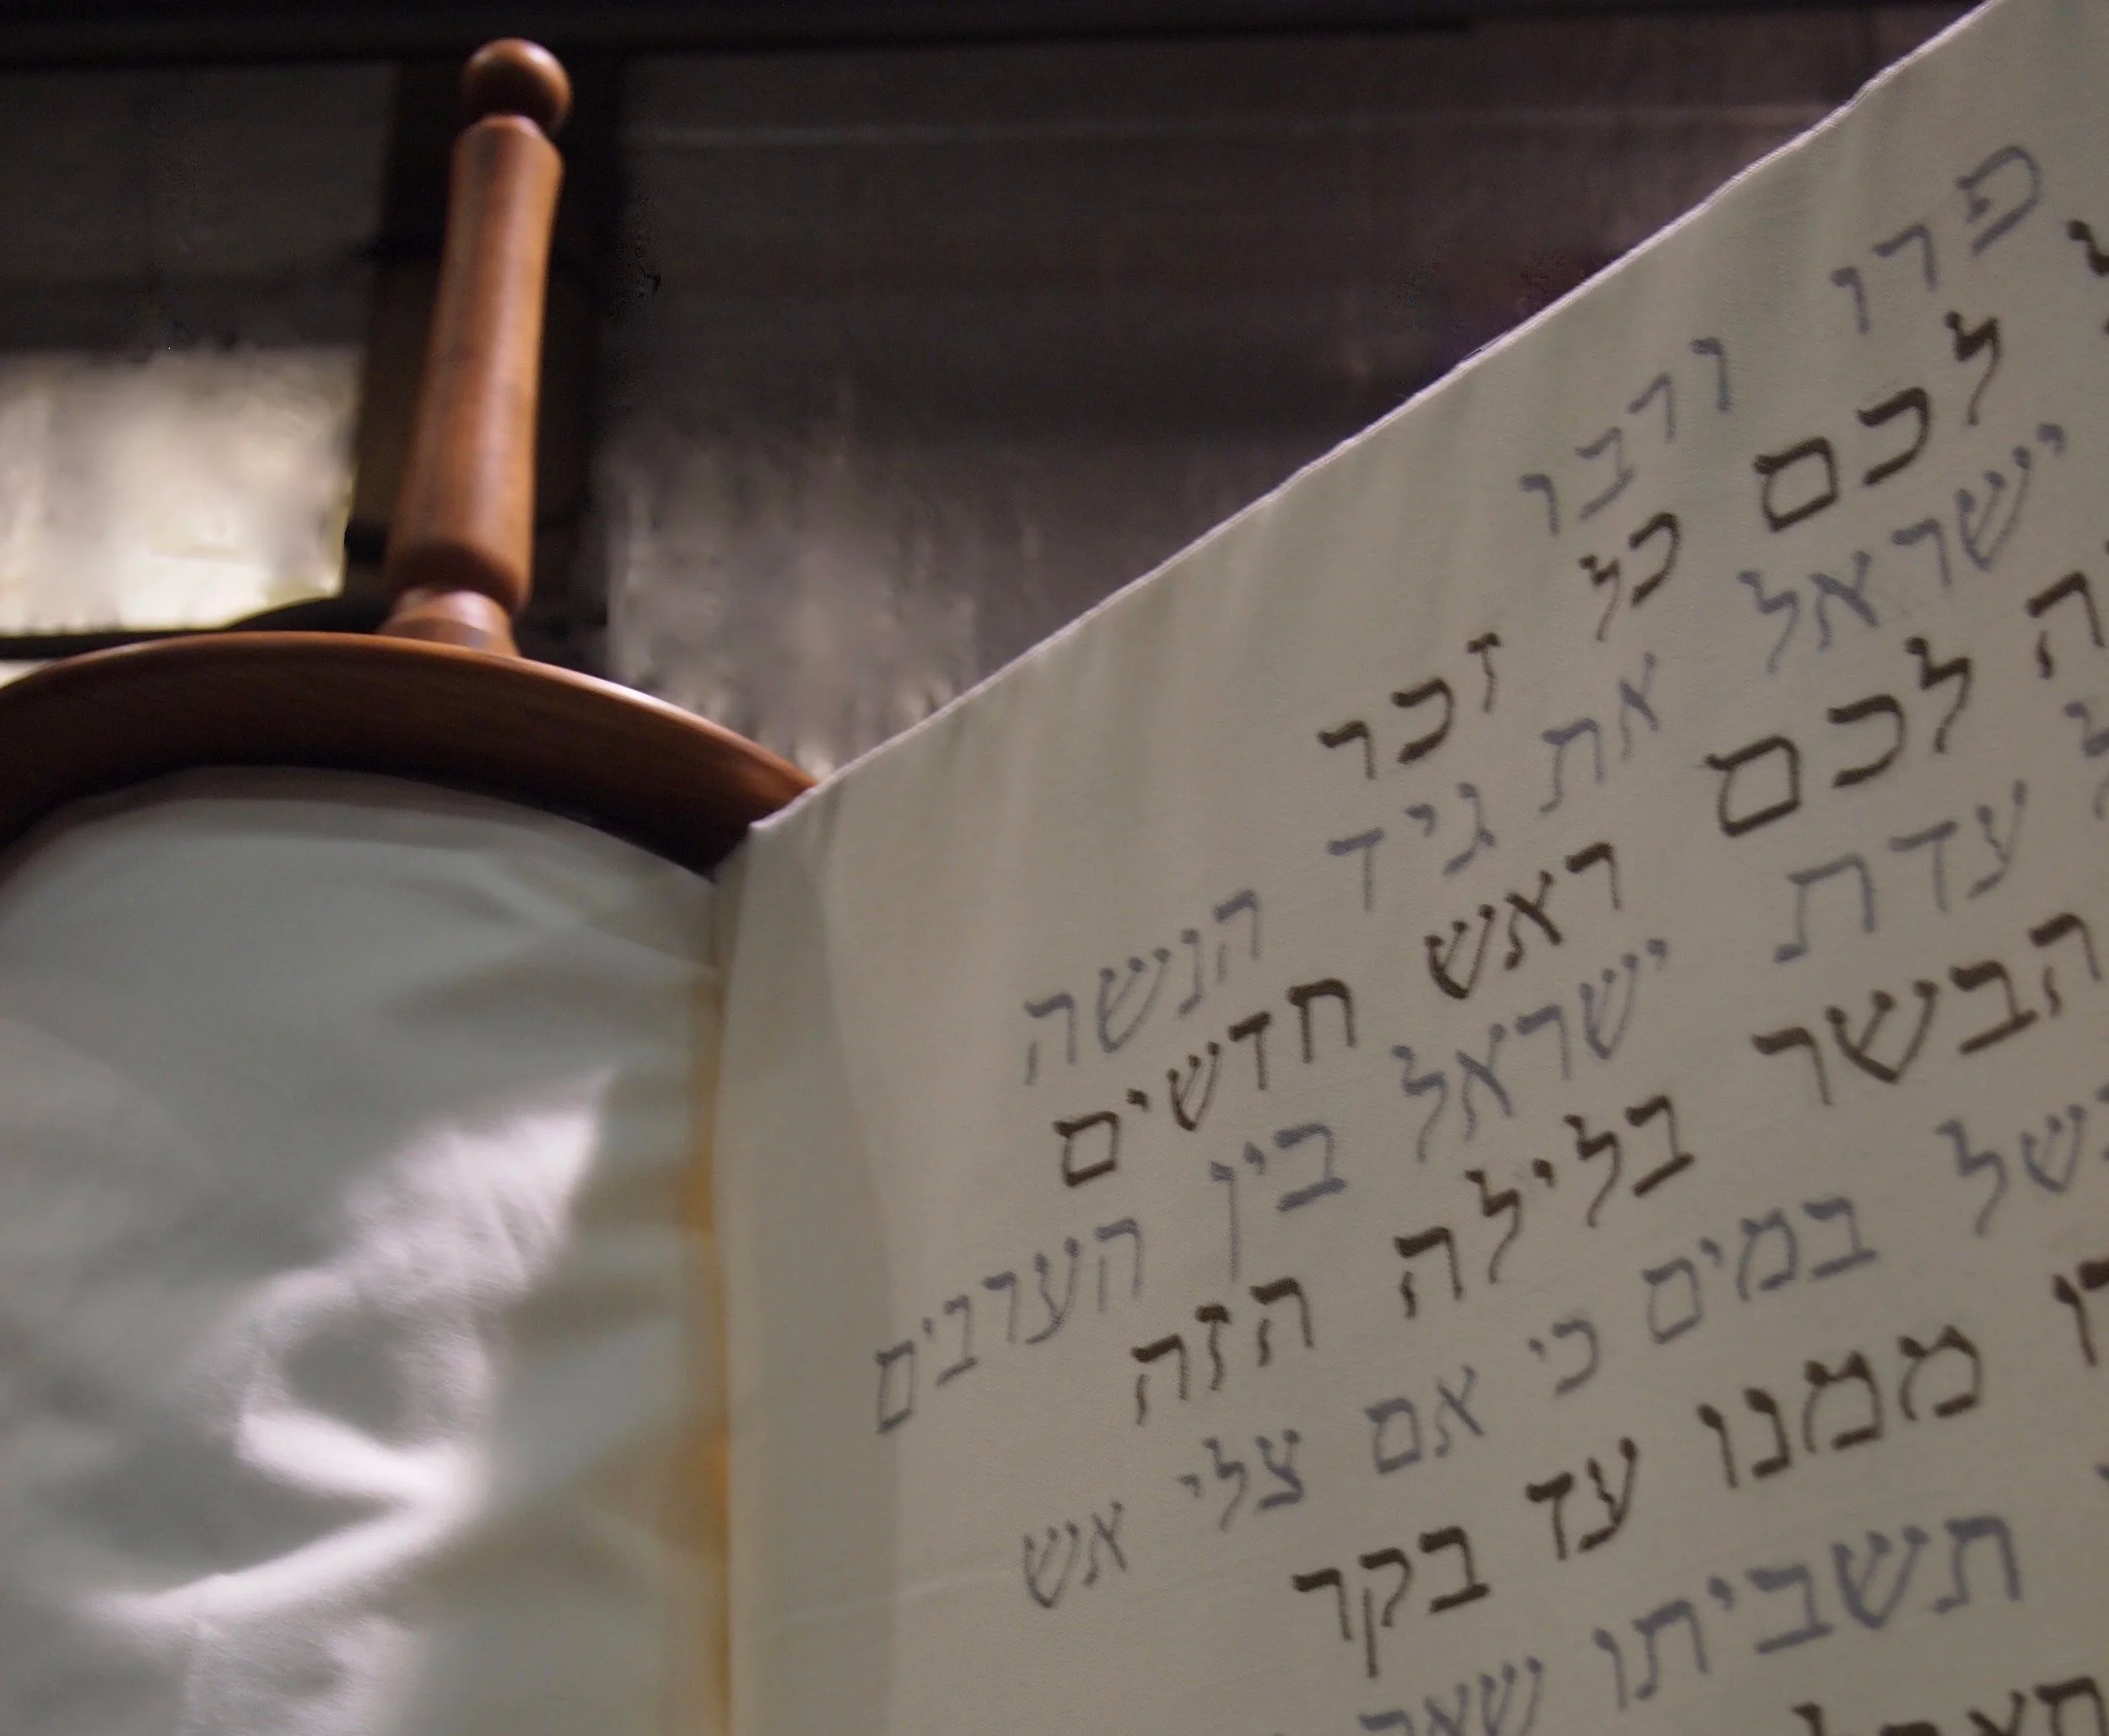 פרו ורבו
לכם כל זכר
ישראל את גיד הנשה
לכם ראש חדשים
עדת ישראל בין הערבים
הבשר בלילה הזה
בשל במים כי אם צלי אש
ממנו עד בקר
תשביתו